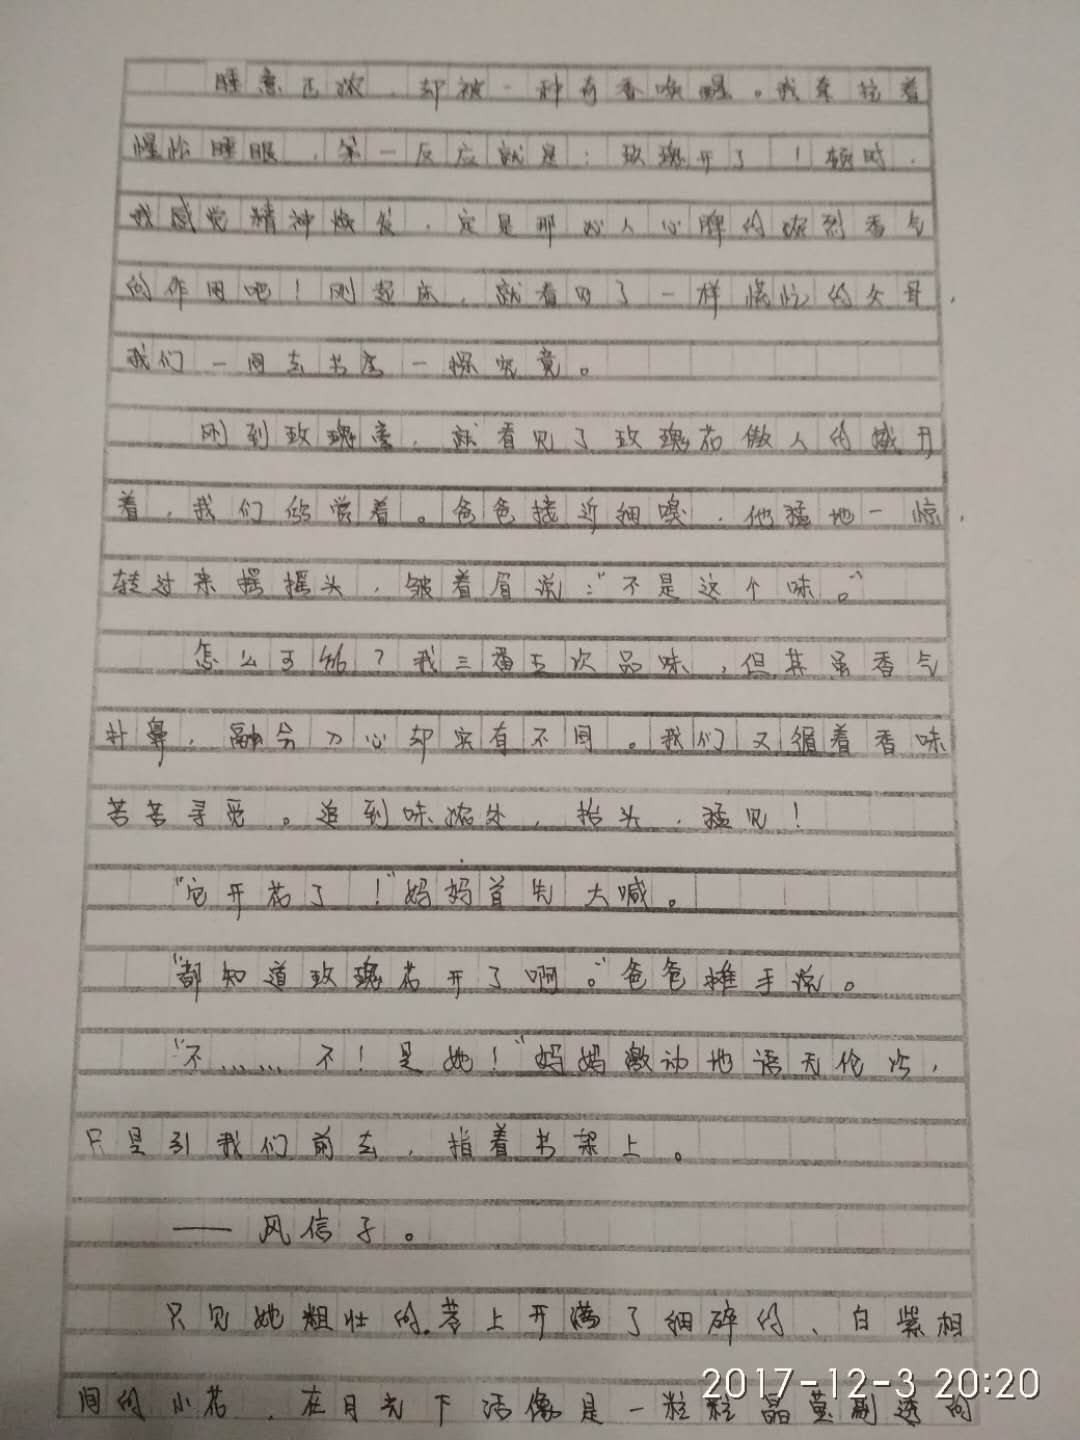 睡意正浓，却被一种奇香唤醒。我耷拉着
惺忪睡眼，第一反应就是：玫瑰开了！顿时，
我感觉精神焕发，定是那沁人心脾的浓烈香气
的作用吧！刚起床，就看见了一样慌忙的父母，
我们一同去书房一探究竟。
刚到玫瑰旁，就看见了玫瑰花傲人的盛开
着，我们欣赏着。爸爸接近细嗅，他猛地一惊，
转过来摇摇头，皱着眉说：“不是这个味。”
怎么可能？我三番五次品味，但其虽香气
扑鼻，融会了心却实有不同。我们又循着香味
苦苦寻觅。追到味浓处，抬头，猛见！
“它开花了！”妈妈首先大喊。
“都知道玫瑰花开了啊。”爸爸摊手说。
“不……不！是她！”妈妈激动地语无伦次，
只是引我们前去，指着书架上。
——风信子。
只见她粗壮的茎上开满了细碎的、白紫相
间的小花，在月光下活像是一粒粒晶莹剔透的
2017-12-3 20:20